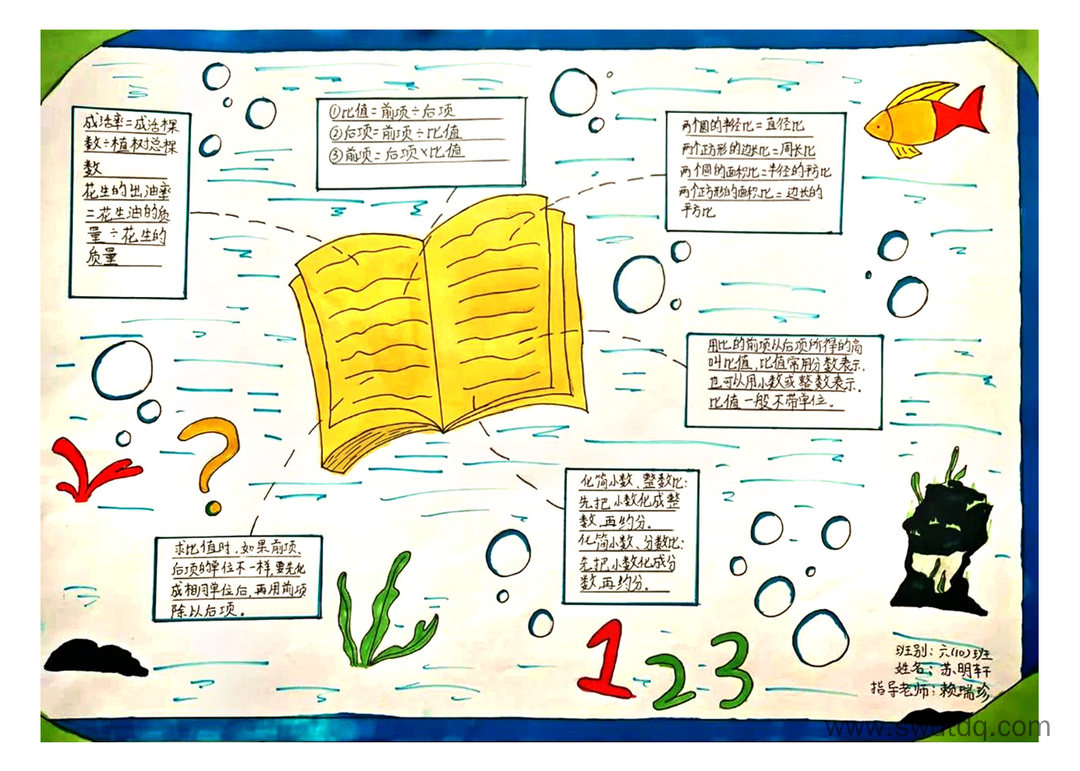 成活率=成活棵
数÷植树总棵
数
花生的出油率
=花生油的质
量÷花生的
质量
①比值=前项÷后项
②后项=前项÷比值
③前项=后项×比值
两个圆的半径比=直径比
两个正方形的边长比=周长比
两个圆的面积比=半径的平方比
两个正方形的面积比=边长的
平方比
用比的前项从后项所得的商
叫比值,比值常用分数表示,
也可以用小数或整数表示,
比值一般不带单位。
化简小数、整数比:
先把小数化成整
数,再约分。
化简小数、分数比:
先把小数化成分
数,再约分。
求比值时,如果前项、
后项的单位不一样,要先化
成相同单位后,再用前项
除以后项。
1 2 3
班别:六(10)班
姓名:苏明轩
指导老师:赖瑞珍
www.swdtdq.com